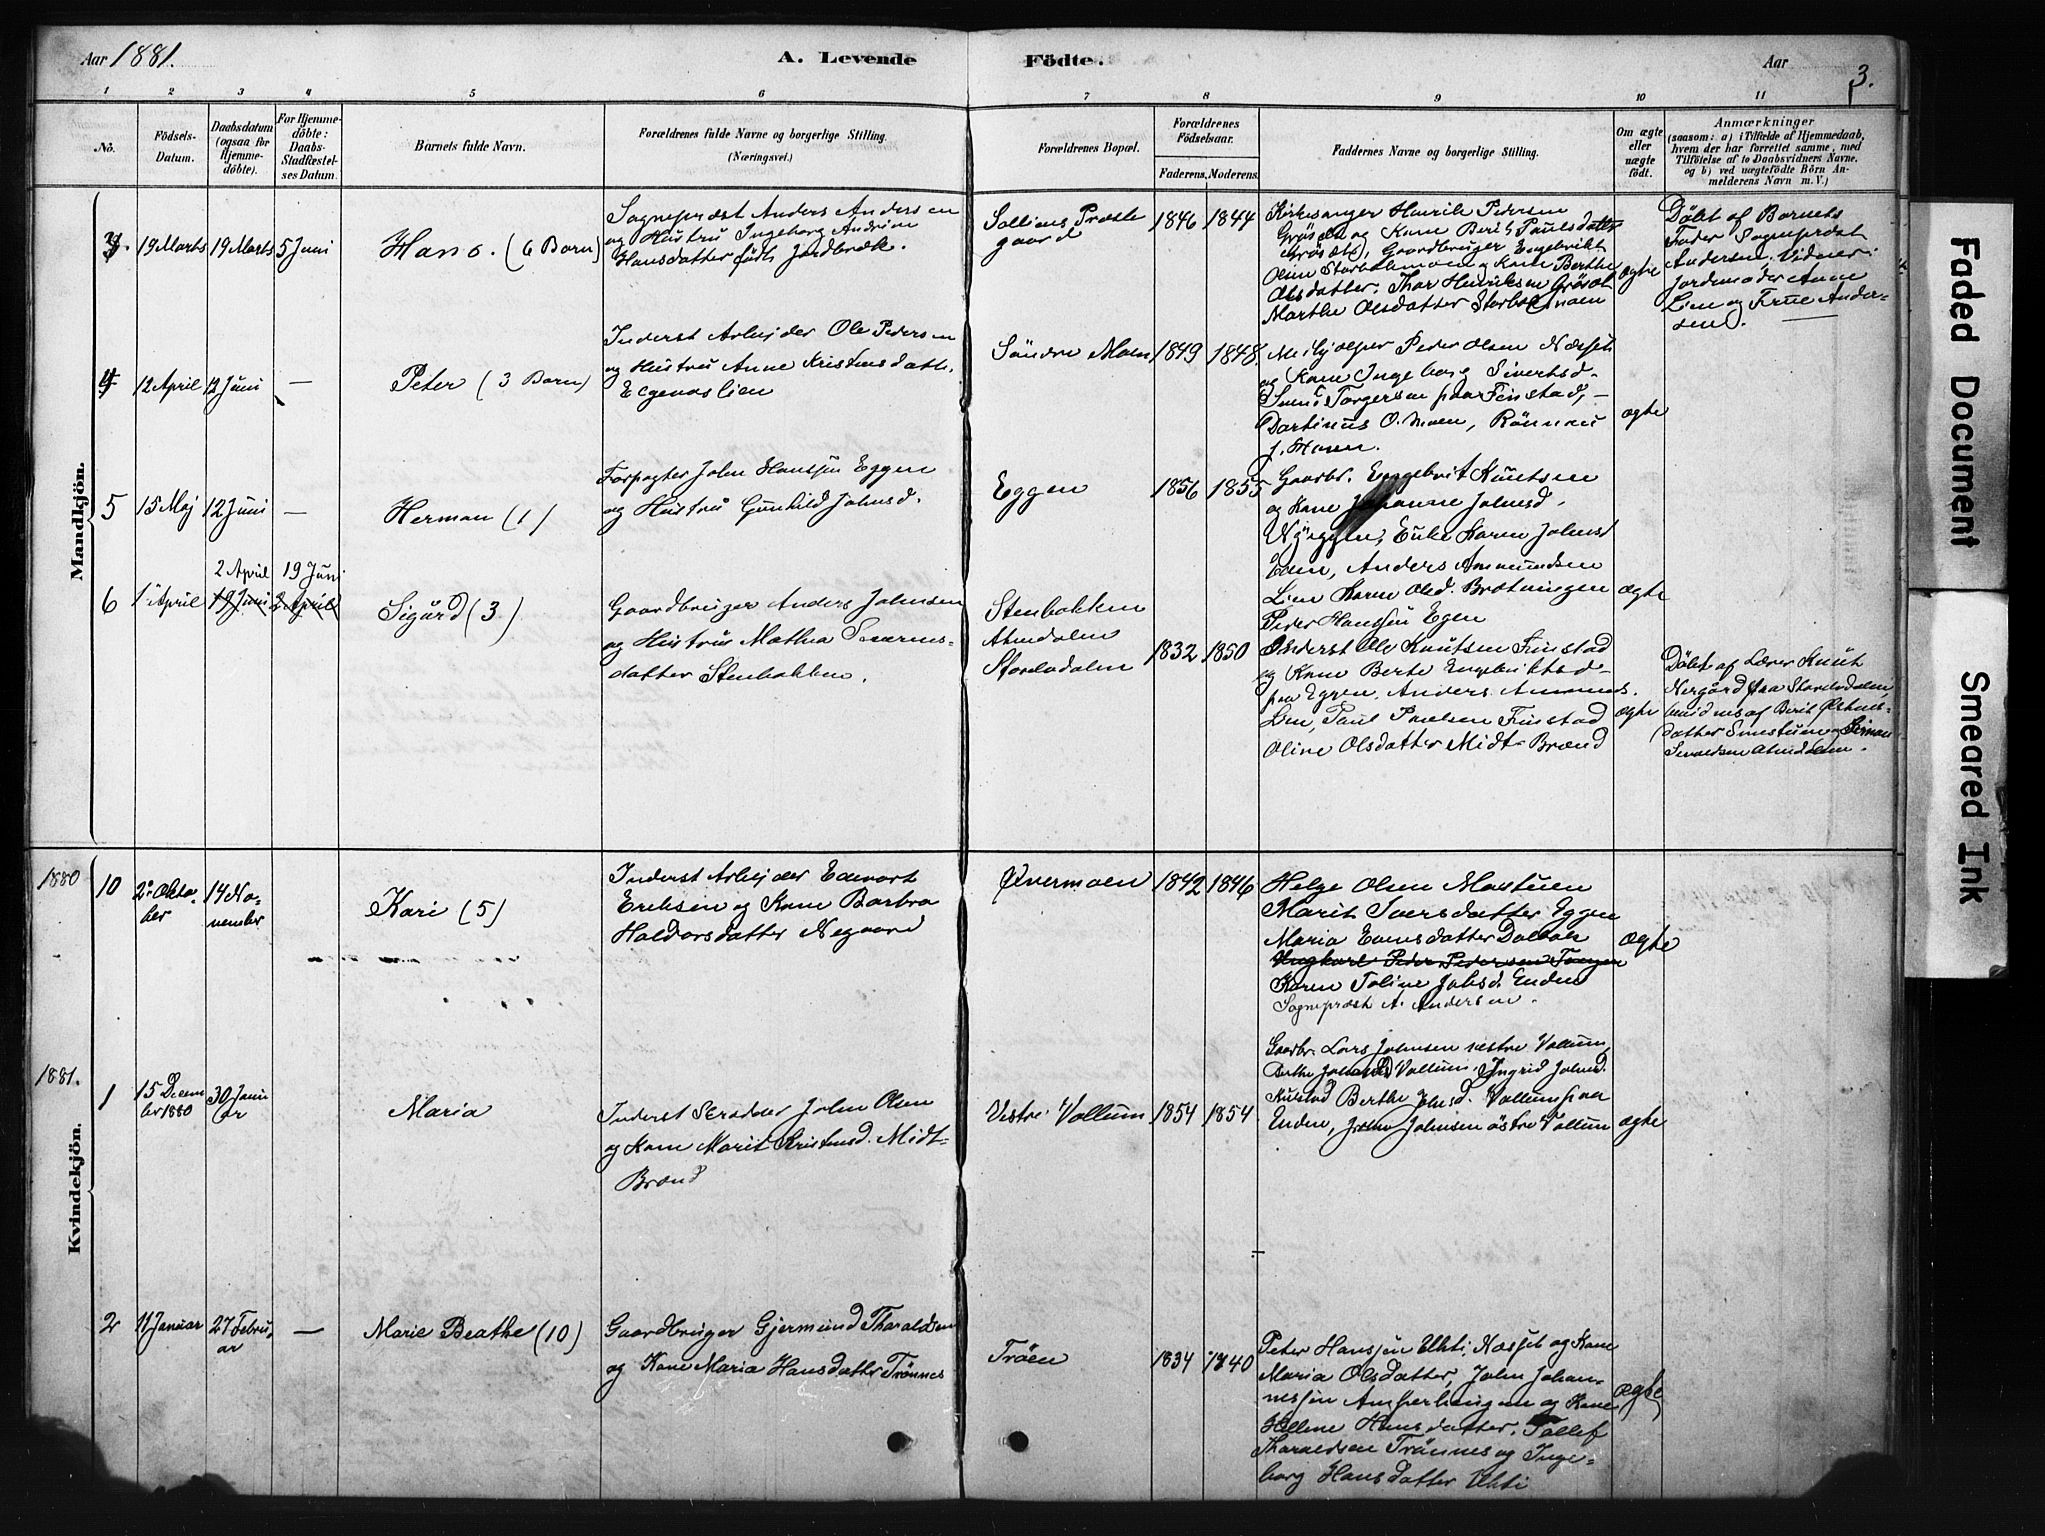 Aar 1881.
A. Levende
Födte.
Aar
3.
1 2 3 4 5 6 7 8 9 10 11
No.
Födsels-
Datum.
Daabsdatum
(ogsaa for
Hjemme-
döbte).
For Hjemme-
döbte:
Daabs-
Stadfæstel-
ses Datum.
Barnets fulde Navn.
Forældrenes fulde Navne og borgerlige Stilling.
(Næringsvei.)
Forældrenes Bopæl.
Forældrenes
Födselsaar.
Faderens. Moderens.
Faddernes Navne og borgerlige Stilling.
Om ægte
eller
uægte
født.
Anmærkninger
(saasom: a) i Tilfælde af Hjemmedaab,
hvem der har forrettet samme, med
Tilföielse af to Daabsvidners Navne,
og b) ved uægtefödte Börn An-
melderens Navn m. V.)
Mandkjön.
3. 19 Marts 19 Marts 5 Juni
Hans. (6 Barn)
Sognepræst Anders Andersen
og Hustru Ingeborg Andrine
Hansdatter født Jordbræk.
Solliens Præste
gaard
1846 1844
Kirkesanger Henrik Pedersen
Grösæt og Kone Berit Paulsdatter
Grösæt, Gaardbruger Engebrikt
Olsen Storbækmoen og Kone Berthe
Olsdatter. Thor Henriksen Grösæt
Marthe Olsdatter Storbækmoen
ægte
Döbt af Barnets
Fader Sognepræst
Andersen. Vidner:
Jordemoder Anne
Lien og Frue Ander-
sen.
4 12 April 12 Juni —
Peter (3 Barn)
Inderst Arbejder Ole Pedersen
og Hustru Anne Kristensdatt.
Elgevaslien
Söndre Moen
1849 1848.
Peder Olsen Næset
og Kone Ingeborg Sivertsd.
Svend Torgersen paa Finstad, —
O. Moen, Rönnau
J. Moen.
ægte
5 15 Maj 12 Juni —
Herman (1)
Forpagter John Hansen Eggen
og Hustru Gunhild Johnsd.
Eggen
1856 1855
Gaarbr. Enggebrit Knutsen
og Kone Johanne Johnsd.
Nyeggen, Enke Karen Johnsd
Eden, Anders Ammundsen
Lien Karen Olsd. Brotningen
Peder Hansen Egen
ægte
6 1 April 2 April 19 Juni
19 Juni 2 April
Sigurd (3)
Gaardbruger Anders Johnsen
og Hustru Mathea Simens-
datter Stenbakken.
Stenbakken
Atnedalen
Stordalen
1832 1850
Inderst Ole Knutsen Finstad
og Kone Berte Engebriktsd.
paa Eggen. Anders Ammunds.
Lien, Paul Paulsen Finstad
Oline Olsdatter Midt-Brænd
ægte
Döbt af Lærer Knut
Nergård fra Stordalen,
af Berit Østens-
datter Smestuen, Simen
Atnedalen.
Kvindekjön.
1880
10 2. Okto-
ber 14 No-
vember
Kari (5)
Inderst Arbejder Edevart
Eriksen og Kone Barbro
Haldorsdatter Negaard
Øvermoen
1842 1846
Helge Olsen Mostuen
Marit Iversdatter Eggen
Maria Evensdatter Dalbak
Ungkarl Peder Pedersen Tangen
Karen Toline Johsd. Enden
Sognepræst A. Andersen.
ægte
1881.
1 15 Decem
ber 1880 30 Janu
ar
Maria
Inderst Skrædder John Olsen
og Kone Marit Kristensd. Midt-
Brænd
Vestre Vollum
1854 1854
Gaarbr. Lars Johnsen vestre Vollum,
Berthe Johnsd Vollum. Ingrid Johnsd.
Nustad Berthe Johnsd. Vollum paa
Enden, John Johnsen östre Vollum
ægte
2 11 Januar 27 Febru-
ar —
Marie Beathe (10)
Gaardbruger Gjermund Tharaldsen
og Kone Maria Hansdatter Trönnes
Tröen
1834 1840
Peter Hansen Uhti. Næset og Kone
Maria Olsdatter, John Johan-
nessen Amperhaugen og Kone
Hellene Hansdatter. Tollef
Tharaldsen Trönnes og Inge-
borg Hansdatter Uhti
ægte
Faded Document
Smeared Ink